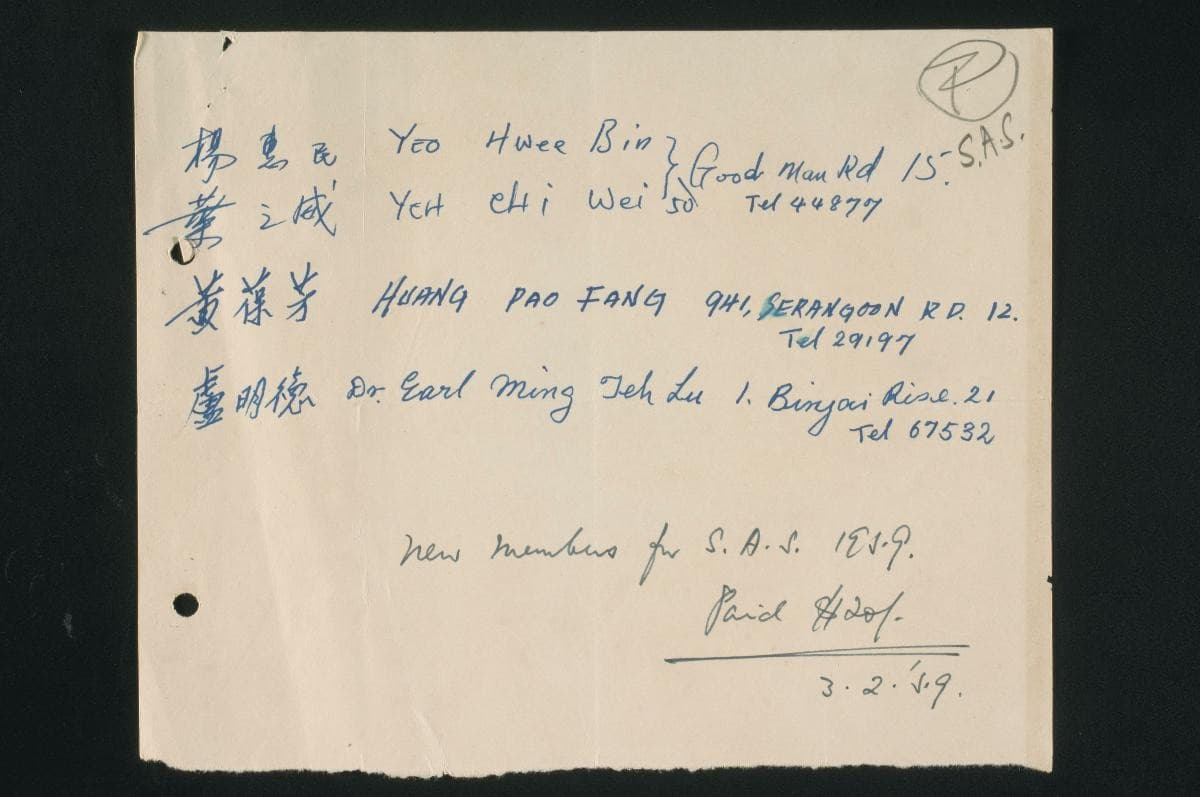 S.A.S.
楊惠民 YEO Hwee Bin
葉之威 YEH CHi Wei } 50 Good Man Rd 15.
Tel 44877
黃葆芳 HUANG PAO FANG 941, SERANGOON RD. 12.
Tel 29197
盧明德 Dr. Earl Ming Teh Lu 1. Binjai Rise. 21
Tel 67532
New members for S.A.S. 1959.
Paid $20/-
3.2.'59.